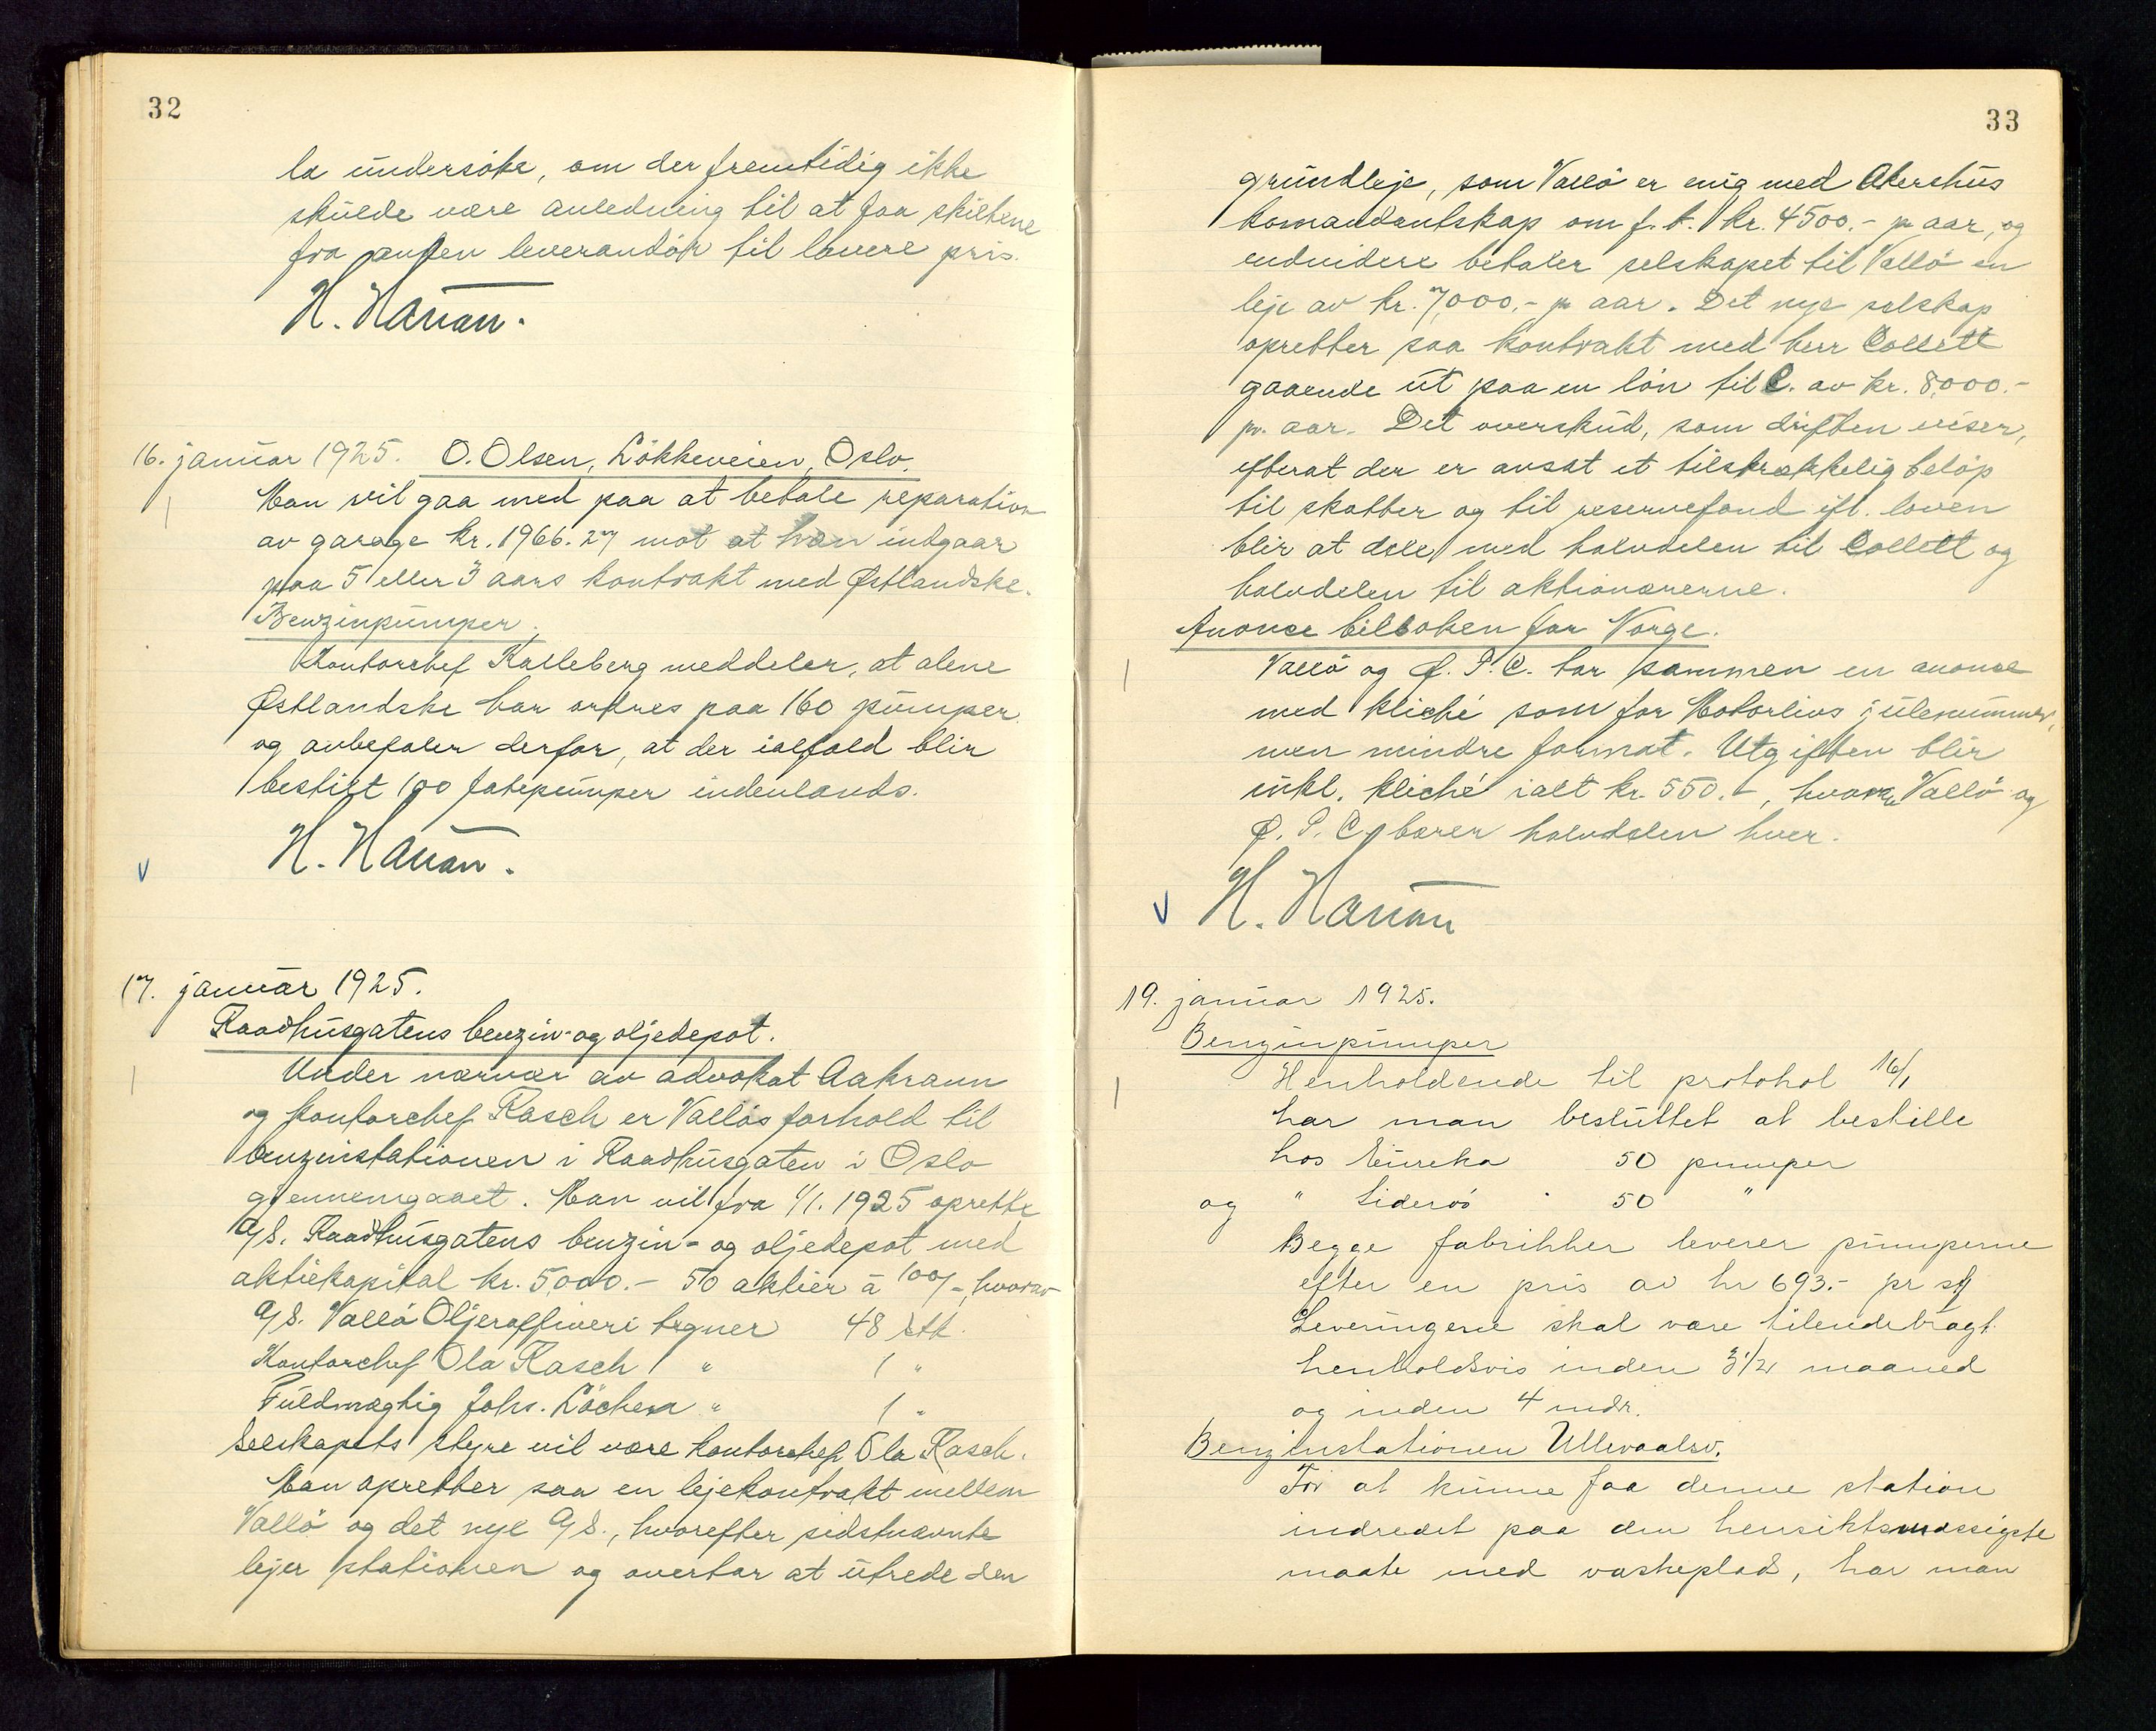 32
la undersöke, om der fremtidig ikke
skulde være anledning til at faa skiltene
fra anden leverandör til lavere pris.
H. Harran.
16. januar 1925. O. Olsen, Lökkeveien, Oslo.
Man vil gaa med paa at betale reparation
av garage kr. 1966.27 mot at han indgaar
paa 5 eller 3 aars kontrakt med Østlandske.
Benzinpumper.
Kontorchef Kalleberg meddeler, at alene
Østlandske har ordres paa 160 pumper
og anbefaler derfor, at der ialfald blir
bestilt 100 fatepumper indenlands.
H. Harran.
17. januar 1925.
Raadhusgatens benzin- og oljedepot.
Under nærvær av advokat Aakrann
og kontorchef Rasch er Vallös forhold til
benzinstationen i Raadhusgaten i Oslo
gjennemgaaet. Man vil fra 1/1. 1925 oprette
A/S. Raadhusgatens benzin- og oljedepot med
aktiekapital kr. 5,000.- 50 aktier à 100/-, hvorav
A/S. Vallö Oljeraffineri tegner 48 stk.
Kontorchef Ola Rasch " 1 "
Fuldmægtig Johs. Löchen " 1 "
Selskapets styre vil være kontorchef Ola Rasch.
Man opretter saa en lejekontrakt mellem
Vallö og det nye A/S., hvorefter sidstnævnte
lejer stationen og overtar at utrede den
33
grundleje, som Vallö er enig med Akershus
komandantskap om f. t. kr. 4500.- pr aar, og
endvidere betaler selskapet til Vallö en
leje av kr. 7,000.- pr aar. Det nye selskap
opretter saa kontrakt med herr Collett
gaaende ut paa en lön til C. av kr. 8,000.-
pr. aar. Det overskud, som driften viser,
efterat der er avsat et tilstrækkelig belöp
til skatter og til reservefond ifl. loven
blir at dele med halvdelen til Collett og
halvdelen til aktionærerne.
Anonce bilboken for Norge.
Vallö og Ø. P. C. tar sammen en anonce
med kliché som for Motorlivs julenummer,
men mindre format. Utgiften blir
inkl. kliché ialt kr. 550.-, hvorav Vallö og
Ø. P. C. bærer halvdelen hver.
H. Harran
19. januar 1925.
Benzinpumper
Henholdende til protokol 16/1
har man besluttet at bestille
hos Eureka 50 pumper
og " Liderö 50 "
Begge fabrikker leverer pumperne
efter en pris av kr 693.- pr stk
Leveringene skal være tilendebragt
henholdsvis inden 3 1/2 maaned
og inden 4 mdr.
Benzinstationen Ullevaalsv.
For at kunne faa denne station
indredet paa den hensiktsmæssigste
maate med vaskeplads, har man